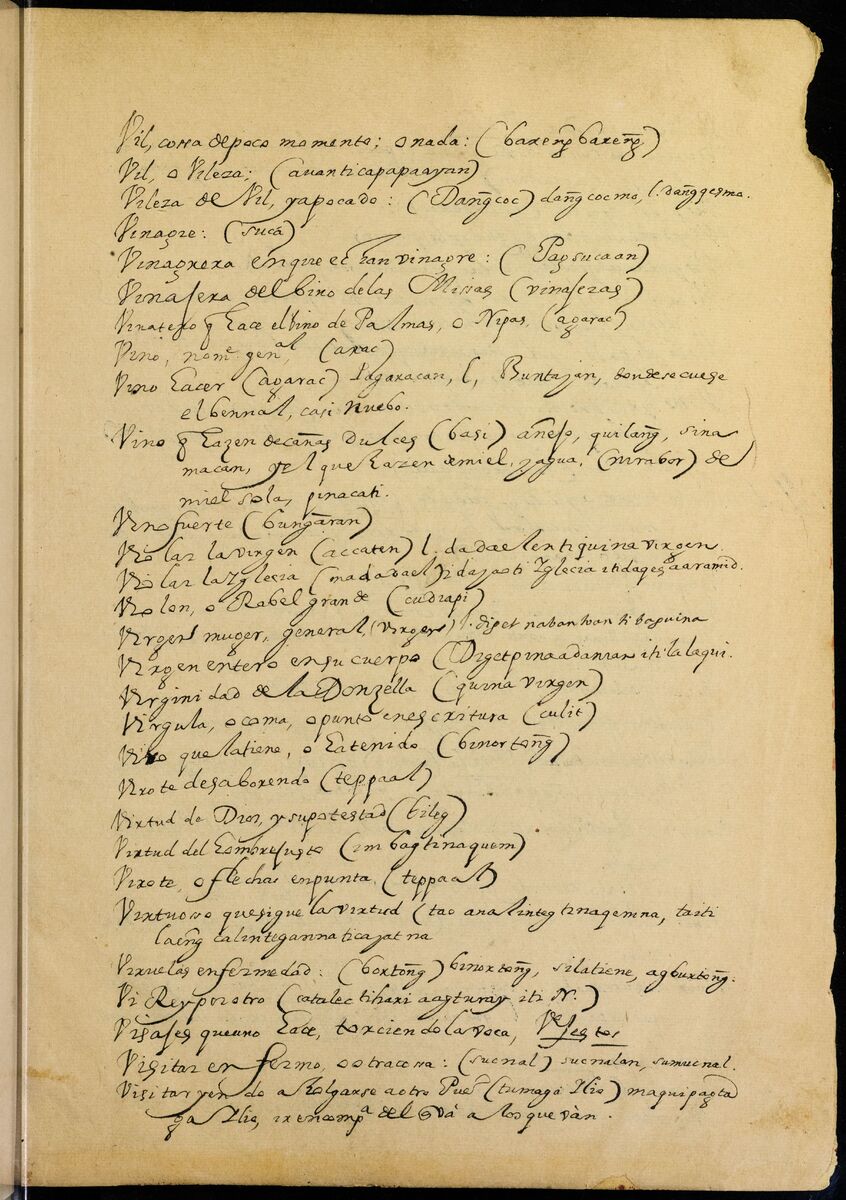 Vil, cossa de poco momento; o nada: (bareng̃ bareng̃)
Vil, o Vileza; (auanti capapaayan)
Vileza de Vil, y apocado: (Dang̃coc) dang̃cocmo, l. dang̃gesmo.
Vinagre: (sucá)
Vinagrera en que echan vinagre: (Pagsucaan)
Vinajera del bino de las Missas (vinajeras)
Vinatero q̃ hace el bino de Palmas, o Nipas, (agarac)
Vino, nome. gen.al, (arac)
Vino hacer (agarac) Pagaracan, l, Buntajan, donde se cuese
el bennal, casi nuebo.
Vino q̃ hazen de cañas dulces (basi) añejo, quilang̃, sina
macan, y el que hazen de miel, y agua, (nirabor) de
miel sola, pinacati.
Vino fuerte (bung̃aran)
Violar la virgen (accaten) l. dadaelenti quinavirgen
Violar la Yglecia (madadael)
Violon, o Rabel grande (cudiapi)
Virgen muger, general, (virgen) l. dipet nabantoan ti bapuina
Virgen entero en su cuerpo
Virginidad de la Donzella (quinavirgen)
Virgula, o coma, o punto en escritura (culit)
que la tiene, o ha tenido (binortong̃)
Virote desaborendo (teppaal)
Virtud de Dios, y su potestad (bileg)
Virtud del hombre justo (imbagtinaquem)
Virote, o flechas en punta, (teppaal)
Virtuosso que sigue la virtud (tao analinteg tinaqemna, taiti
laeng̃ calinteganna ticajatna
Viruelas enfermedad: (bortong̃) binortong̃, si la tiene, agburtong̃.
Vi Rey por otro (catalec tihari aagturay iti N.)
Visajes que uno hace, torciendo la voca, Ve. Jestos
Visitar enfermo, o otra cossa: (sucnal) sucnalan, sumucnal.
Visitar yendo a holgarse a otro Pueo. (tumago Ilio) maquipagta
ga Ilio, ir en compa. del q̃ và a los que vàn.